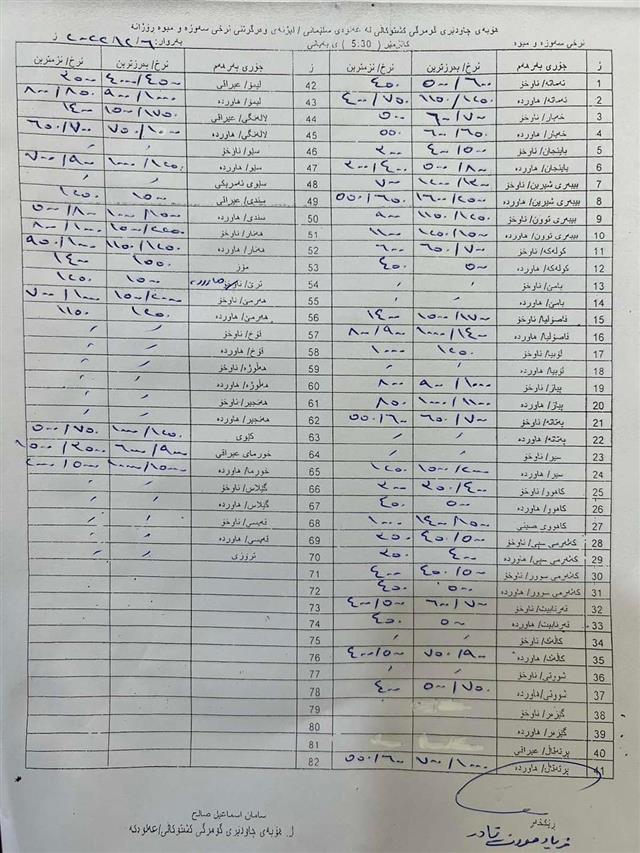 هۆبەی چاودێری گومرگی کشتوکاڵی لە عەلوەی سلێمانی / لیژنەی وەرگرتنی نرخی سەوزە و میوە ڕۆژانە
نرخی سەوزە و میوە کاتژمێر ( 5:30 ) ی بەیانی بەروار: ٢٠٢٢/١٢/٦ ز
ز جۆری بەرهەم نرخ/ بەرزترین نرخ/ نزمترین
1 تەماتە/ ناوخۆ ٥٠٠/٦٠٠ ٤٥٠
2 تەماتە/ هاوردە
3 خەیار/ ناوخۆ ٦٠٠/٧٠٠ ٥٠٠
4 خەیار/ هاوردە ٦٠٠/٦٥٠ ٥٥٠
5 باینجان/ ناوخۆ ٤٠٠/٥٠٠ ٣٠٠
6 باینجان/ هاوردە
7 بیبەری شیرین/ ناوخۆ ١٢٠٠/١٣٠٠ ٧٠٠
8 بیبەری شیرین/ هاوردە
9 بیبەری توون/ ناوخۆ ١١٥٠/١٢٥٠ ٩٠٠
10 بیبەری توون/ هاوردە
11 کولەکە/ ناوخۆ ٦٥٠/٧٠٠ ٦٠٠
12 کولەکە/ هاوردە ٥٠٠ ٤٥٠
13 بامێ/ ناوخۆ
14 بامێ/ هاوردە
15 فاصۆلیا/ ناوخۆ ١٥٠٠/١٧٠٠ ١٤٠٠
16 فاصۆلیا/ هاوردە ١٠٠٠/١٤٠٠ ٨٠٠/٩٠٠
17 لۆبیا/ ناوخۆ ١٢٥٠ ١٠٠٠
18 لۆبیا/ هاوردە
19 پیاز/ ناوخۆ ٩٠٠/١٠٠٠ ٨٠٠
20 پیاز/ هاوردە ١٠٠٠/١١٠٠ ٨٥٠
21 پەتاتە/ ناوخۆ ٦٥٠/٧٠٠ ٥٥٠/٦٠٠
22 پەتاتە/ هاوردە
23 سیر/ ناوخۆ
24 سیر/ هاوردە ١٥٠٠/٢٠٠٠ ١٢٥٠
25 کاهوو/ ناوخۆ ٣٥٠/٤٠٠ ٣٠٠
26 کاهوو/ هاوردە ٥٠٠ ٤٥٠
27 کاهووی صینی ١٤٠٠/١٥٠٠ ١٠٠٠
28 کەلەرمی سپی/ ناوخۆ ٤٥٠/٥٠٠ ٣٥٠
29 کەلەرمی سپی/ هاوردە ٤٠٠ ٣٥٠
30 کەلەرمی سوور/ ناوخۆ ٤٥٠/٥٠٠ ٤٠٠
31 کەلەرمی سوور/ هاوردە ٥٠٠ ٤٥٠
32 قەرنابیت/ ناوخۆ ٦٠٠/٧٠٠ ٤٠٠/٥٠٠
33 قەرنابیت/ هاوردە ٥٠٠ ٤٥٠
34 کاڵەک/ ناوخۆ
35 کاڵەک/ هاوردە ٧٥٠/٩٠٠ ٤٠٠/٥٠٠
36 شووتی/ ناوخۆ
37 شووتی/هاوردە ٥٠٠/٧٠٠ ٤٠٠
38 گێزەر/ ناوخۆ
39 گێزەر/ هاوردە
40 پرتەقاڵ/ عیراقی
41 پرتەقاڵ/ هاوردە ٧٠٠/١٠٠٠ ٥٥٠/٦٠٠
ز جۆری بەرهەم نرخ/ بەرزترین نرخ/ نزمترین
42 لیمۆ/ عیراقی ٤٠٠/٤٥٠ ٣٥٠
43 لیمۆ/ هاوردە ٩٠٠/١٠٠٠ ٨٠٠/٨٥٠
44 لالەنگی/ عیراقی ١٥٠٠/١٧٥٠ ١٤٠٠
45 لالەنگی/ هاوردە ٦٥٠/٧٠٠
46 سێو/ ناوخۆ
47 سێو/ هاوردە ١٠٠٠/١٢٥٠ ٧٠٠/٩٠٠
48 سێوی ئەمریکی
49 سندی/ عیراقی ١٥٠٠ ١٢٥٠
50 سندی/ هاوردە ١٠٠٠/١٥٠٠ ٥٠٠/٨٠٠
51 هەنار/ ناوخۆ ١٥٠٠/٢٢٥٠ ٨٠٠/١٠٠٠
52 هەنار/ هاوردە ١١٥٠/١٢٥٠ ٩٥٠/١٠٠٠
53 مۆز ١٥٥٠ ١٤٠٠
54 ترێ/ ناوخۆ ١٥٠٠ ١٢٥٠
55 هەرمێ/ ناوخۆ ١٥٠٠/٢٠٠٠ ٧٠٠/١٠٠٠
56 هەرمێ/ هاوردە ١٢٥٠ ١١٥٠
57 قۆخ/ ناوخۆ
58 قۆخ/ هاوردە
59 هەڵوژە/ ناوخۆ
60 هەڵوژە/ هاوردە
61 هەنجیر/ ناوخۆ
62 هەنجیر/ هاوردە
63 کیوی ١٠٠٠/١٢٥٠ ٥٠٠/٧٥٠
64 خورمای عیراقی
65 خورما/ هاوردە
66 گێلاس/ ناوخۆ
67 گێلاس/ هاوردە
68 قەیسی/ ناوخۆ
69 قەیسی/ هاوردە
70 ترۆزی
71
72
73
74
75
76
77
78
79
80
81
82
ڕێکخەر
سامان اسماعیل صالح
ل. هۆبەی چاودێری گومرگی کشتوکاڵی/عەلوەکە